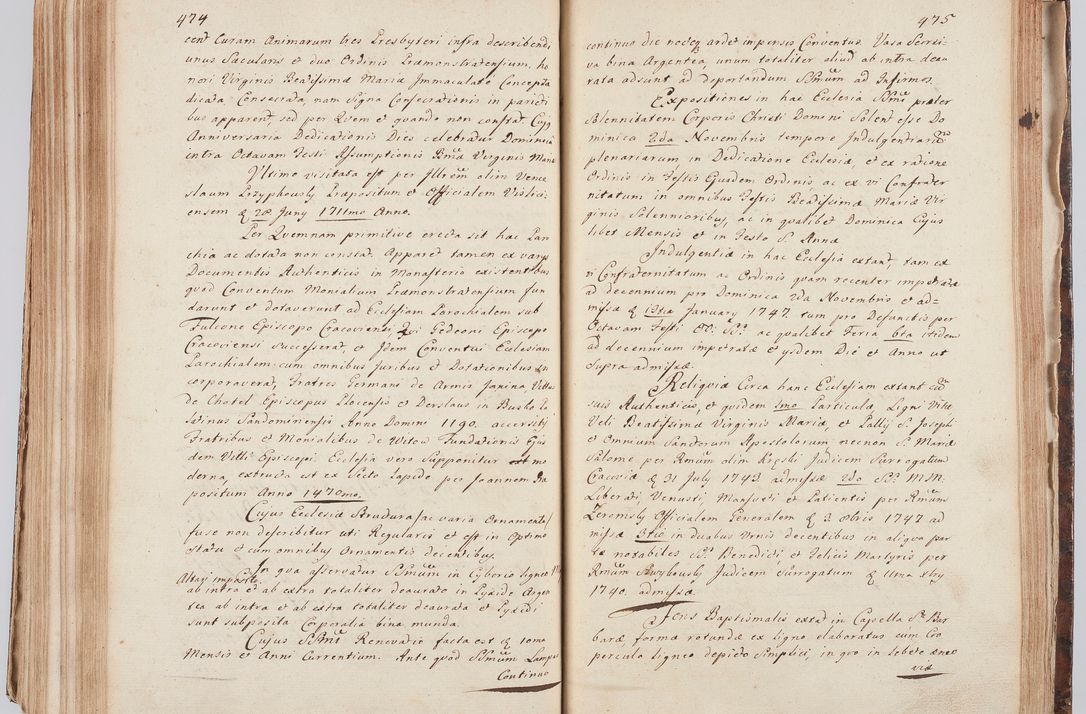 474
cent Curam Animarum tres Presbyteri infra describendi
unus Sacularis et duo Ordinis Præmonstratensium, ho
nori Virginis Beatissimæ Mariæ Immaculatè Conceptæ
dicata Consecrata, nam Signa Consecrationis in parieti
bus apparent sed per Quem et quando non constat. Cujg
Anniversaria Dedicationis Dies celebratur Dominica
intra Octavam Festi Assumptionis Bmæ Virginis Mariæ
Ultimo visitata est per Illrem olim Vence
slaum Præpositum et Officialem Vislici
ensem d 28 Juny 1711mo Anno.
Per Quemnam primitive erecta sit hac Par
chia ac dotata non constat. Apparet tamen ex varys
Documentis Authenticis in Monasterio existentibus
quod Conventum Monialium Præmonstratensium fun
darunt et dotaverunt ad Ecclesiam Parochialem sub
Fulcone Episcopo Cracoviensi, Qui Gedeoni Episcopo
Cracoviensi successerat, et Idem Conventui Ecclesiam
Parochialem cum omnibus Juribus et Dotationibus in
corporaverat, Fratres Germani de Armis Janina Vittus
de Chotel Episcopus Plocensis et Derslaus in Busko Pa
latinus Sandomiriensis Anno Domini 1190. accersitis
Fratribus et Monialibus de Witow Fundationis Ejus
dem Vitti Episcopi Ecclesia vero Supponitur est mo
derna, extructa est ex Secto Lapide per Joannem Præ
positum Anno 1470mo.
Cujus Ecclesiæ Structura/ac varia Ornamenta/
fuse non describitur uti Regularis et est in Optimo
statu et cum omnibus Ornamentis decentibus.
In qua asservatur SSmum in Cyborio ligneo
Altari imposito ab intra et ab extra totaliter deaurato in Pyxide Argen
tea ab intra et ab extra totaliter deaurata et Pyxidi
sunt subposita Corporalia bina munda.
Cujus SSmi Renovatio facta est d 10mo
Mensis et Anni Currentium. Ante quod SSmum Lampas
Continuo
475
continuo die noctuq ardet impensis Conventus. Vasa Servi
va bina Argentea, unum totaliter aliud ab intra deau
rata adsunt ad deportandum SSmum ad Infirmos.
Expositiones in hac Ecclesia SSmi præter
Solennitatem Corporis Christi Domini Solent esse Do
minica 2da Novembris tempore Indulgentiarum
plenariarum in Dedicatione Ecclesiæ, et ex ratione
Ordinis in Festis Ejusdem Ordinis ac ex vi Confrater
nitatum in omnibus Festis Beatissimæ Mariæ Vir
ginis Solennioribus, ac in qualibet Dominica Cujus
libet Mensis et in Festo S. Annæ
Indulgentiæ in hac Ecclesia extant, tam ex
vi Confraternitatum ac Ordinis quam recenter impetratæ
ad decennium pro Dominica 2da Novembris et ad-
missæ d 13tia January 1747. tum pro Defunctis per
Octavam Festi OO. SS. ac qualibet Feria 6ta itidem
ad decennium impetratæ et ysdem Die et Anno ut
supra admissæ.
Reliquiæ Circa hanc Ecclesiam extant cu
suis Authenticis, et quidem 1mo Particula, Ligni Vitæ
Veli Beatissimæ Virginis Mariæ, et Pallij S. Josephi
et Omnium Sanctorum Apostolorum necnon S. Mariæ
Salome per Rmum olim Kręski Judicem Surrogatum
Cracoviæ d 31 July 1743. admissæ 2do SS. M.M.
Liberati, Venusti Mansueti et Patientis per Rmum
Żeromsky Officialem Generalem d 3. 8bris 1747 ad
missæ 3tio in duabus Urnis decentibus in aliqua par
te notabiles SS. Benedicti et Felicis Martyris per
Rmum Judicem Surrogatum d 11ma xbry
1740. admissæ.
Fons Baptismalis extat in Capella S. Bar
baræ, forma rotunda ex ligno elaboratus cum Coo
perculo ligneo depicto simplici, in quo in lebete æneo
via